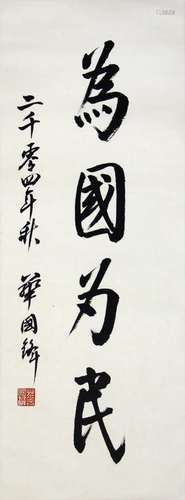 為國为民
二千零四年秋
華國鋒